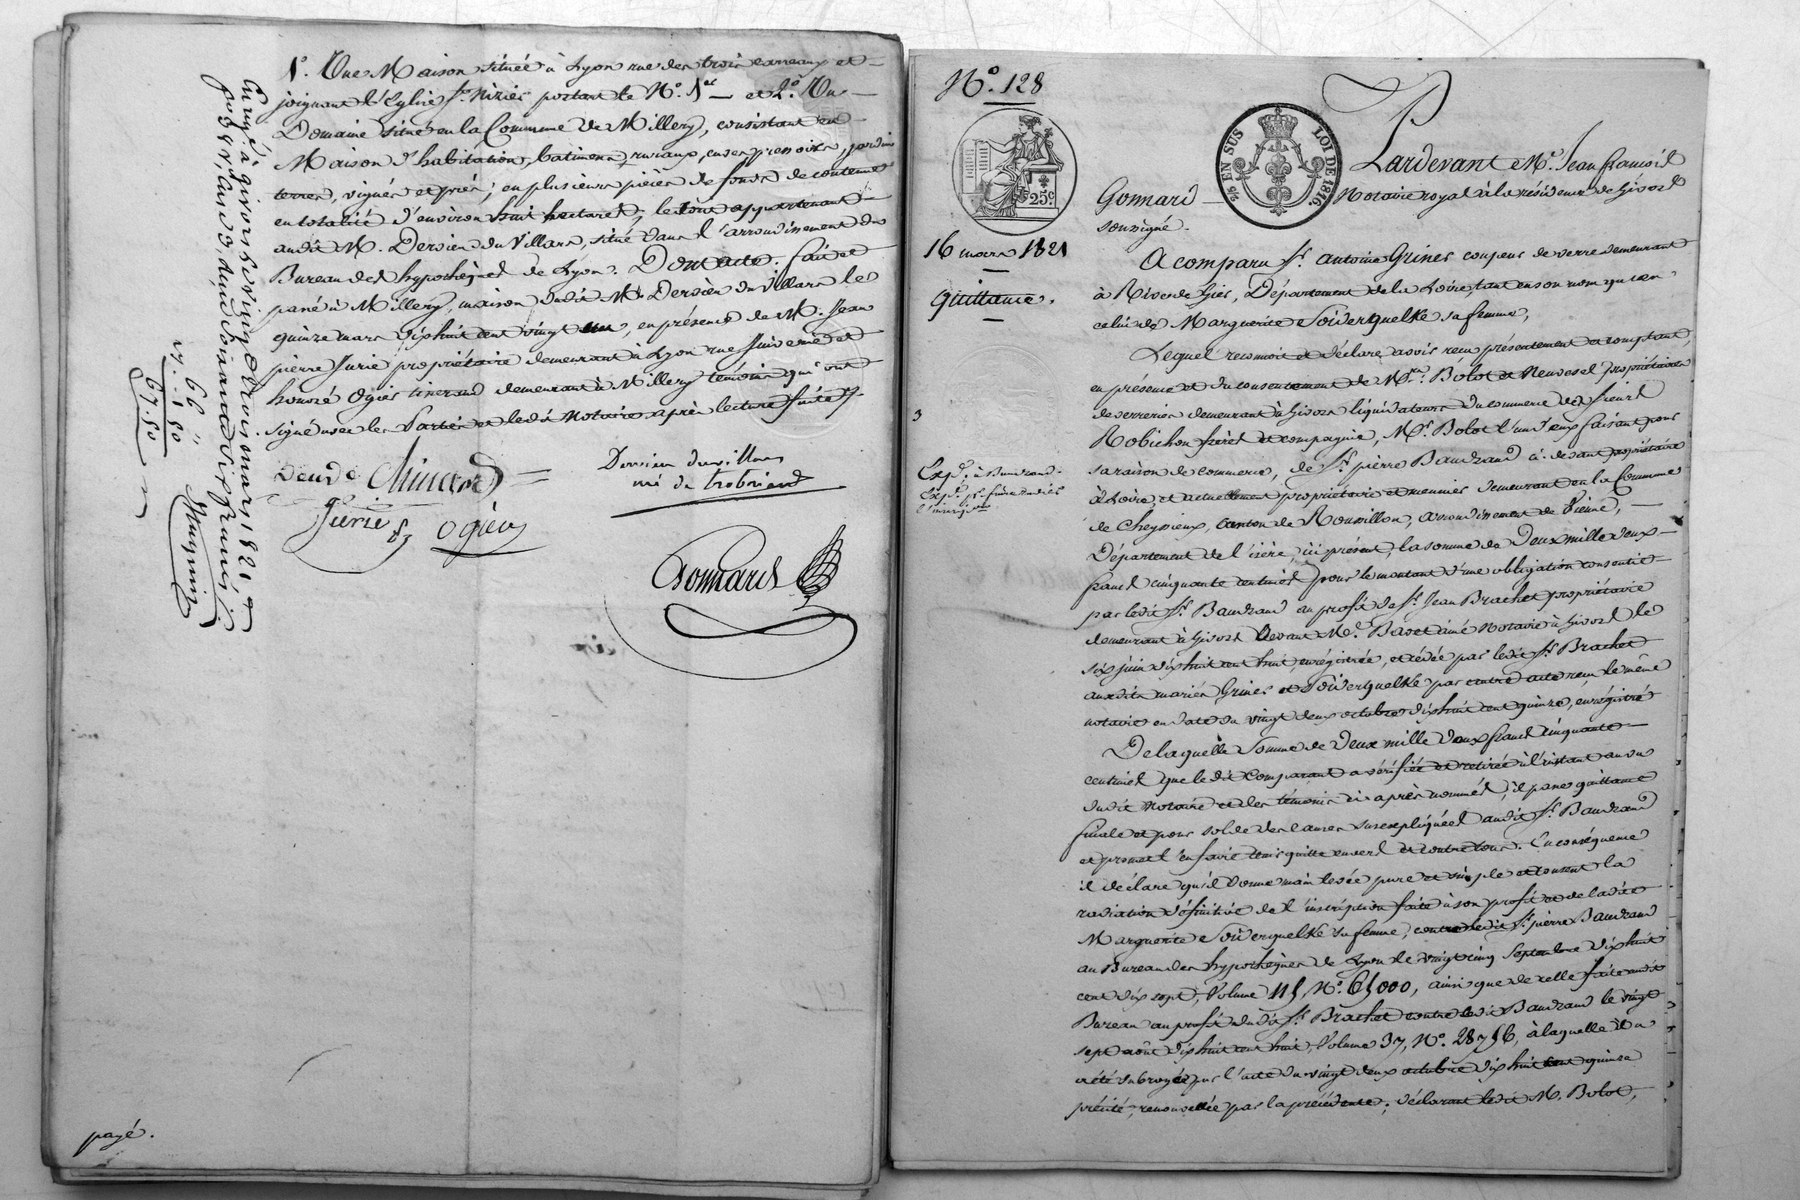 1.° Une Maison située à Lyon rue des trois carreaux et
joignant l'Eglise St. Nizier portant le N.° 1er et 2.° Un
Domaine situé en la Commune de Millery, consistant en
Maison d'habitation, batimens ruraux, cuves, pressoirs, jardins
terres, vignes et prés; en plusieurs pièces de fonds de contenue
en totalité d'environ huit hectares; le tout appartenant
audit M. Dervieu du Villars, situé dans l'arrondissement du
Bureau des hypothèques de Lyon. Dont acte. fait et
passé à Millery, maison dudit M. Dervieu du Villars le
quinze mars dix huit cent vingt un, en présence de M. Jean
pierre Jurie propriétaire demeurant à Lyon rue et
honoré Ogier tisserand demeurant à Millery témoins qui ont
signé avec les Parties et ledit Notaire après lecture faite.
Dervieu duvillars
né de trobriand
Jurie
Ogier
Gonnard
Enreg.é à givors le vingt trois mars 1821
reçu soixante dix francs
66 "
1. 50
67. 50
payé.
N.° 128
25 EN SUS
LOI DE 1816
25c
16 mars 1821
Quittance.
3
Exp.on à Baudrand.
Pardevant Me. Jean François
Gonnard Notaire royal à la résidence de Givors
soussigné.
A comparu Sr. Antoine Grines coupeur de verre demeurant
à Rive de Gier, Département de la Loire, tant en son nom qu'en
celui de Marguerite Soiderquelke sa femme,
Lequel reconnoit et déclare avoir reçu présentement et comptant,
en présence et du consentement de Mrs. Bolot et Neuvesel propriétaires
de verreries demeurant à Givors liquidateurs du commerce des sieurs
Robichon frères et compagnie, Mr. Bolot l'un d'eux faisant pour
sa raison de commerce, de Sr. pierre Baudrand ci-devant propriétaire
à Loire, et actuellement propriétaire et meunier demeurant en la Commune
de Cheyssieux, canton de Roussillon, arrondissement de Vienne,
Département de l'isère, ici présent, la somme de Deux mille deux
francs cinquante centimes pour le montant d'une obligation consentie
par ledit Sr. Baudrand au profit de Sr. Jean Brachet propriétaire
demeurant à Givors devant Me. Bavet ainé Notaire à Givors le
six juin dix huit cent huit, enregistrée, et cédée par ledit Sr. Brachet
auxdits mariés Grines et Soiderquelke par autre acte reçu le même
notaire en date du vingt deux octobre dix huit cent quinze, enregistré
De laquelle somme de Deux mille deux francs cinquante
centimes que ledit Comparant a vérifiée et retirée à l'instant au vu
dudit notaire et des témoins ci-après nommés, il passe quittance
finale et pour solde des causes sus expliquées audit Sr. Baudrand
et promet l'en faire tenir quitte envers et contre tous. En conséquence
il déclare qu'il donne main levée pure et simple et consent la
radiation définitive de l'inscription faite à son profit et de ladite
Marguerite Soiderquelke sa femme, contre ledit Sr. pierre Baudrand
au Bureau des hypothèques de Lyon le vingt cinq Septembre dix huit
cent dix sept, Volume 115, N.° 65000, ainsi que de celle faite audit
Bureau au profit dudit Sr. Brachet contre ledit Baudrand le vingt
sept août dix huit cent huit, Volume 37, N.° 28756, à laquelle il a
été subrogé par l'acte du vingt deux octobre dix huit cent quinze
précité, renouvellée par la précédente; déclarant ledit M. Bolot,